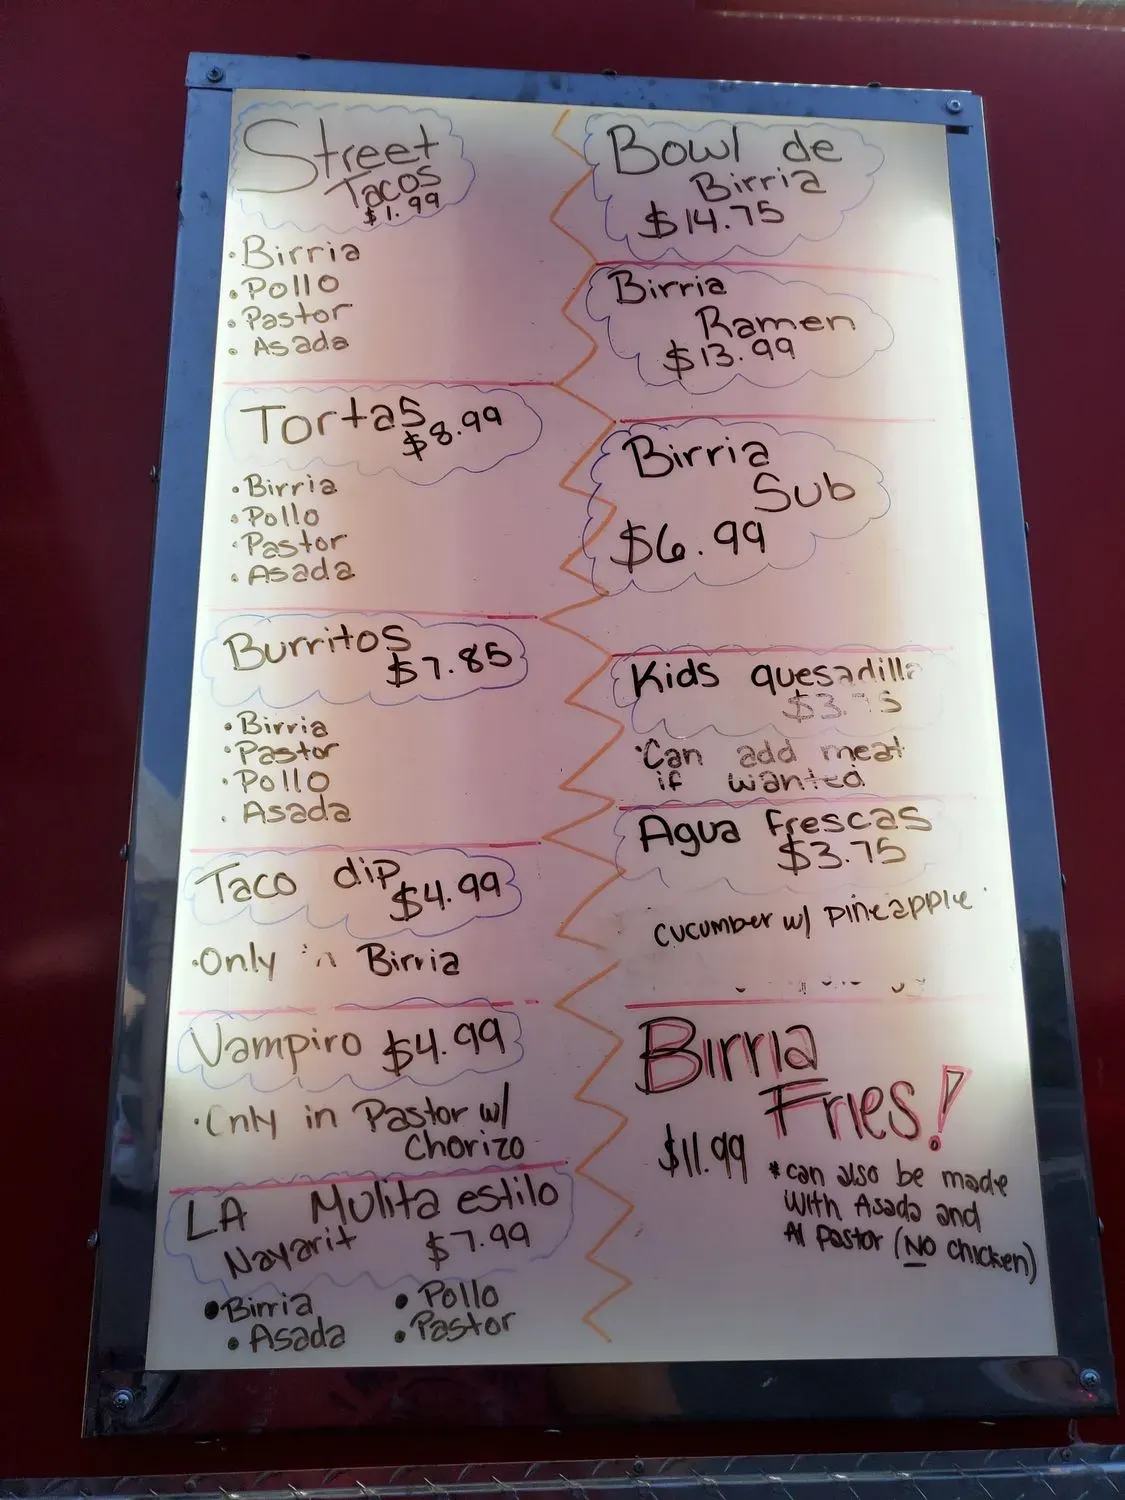 Street
Tacos
$1.99
• Birria
• Pollo
• Pastor
• Asada
Tortas
$8.99
• Birria
• Pollo
• Pastor
• Asada
Burritos
$7.85
• Birria
• Pastor
• Pollo
• Asada
Taco dip
$4.99
• Only in Birria
Vampiro $4.99
• Only in Pastor w/
Chorizo
LA Mulita estilo
Nayarit $7.99
• Birria • Pollo
• Asada • Pastor
Bowl de
Birria
$14.75
Birria
Ramen
$13.99
Birria
Sub
$6.99
Kids quesadilla
$3.75
• Can add meat
if wanted
Agua frescas
$3.75
cucumber w/ pineapple
Birria
Fries!
$11.99
* can also be made
with Asada and
Al pastor (NO chicken)